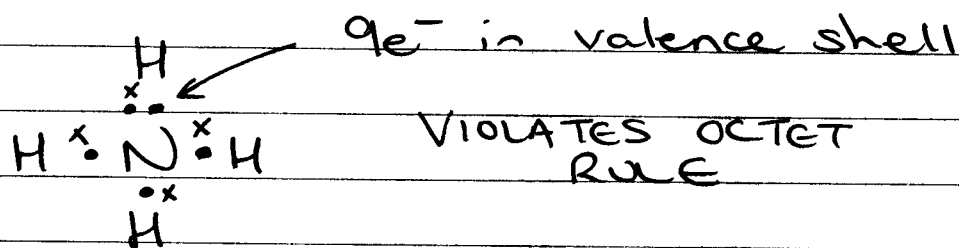 9e⁻ in valence shell
H
H N H
H
VIOLATES OCTET
RULE